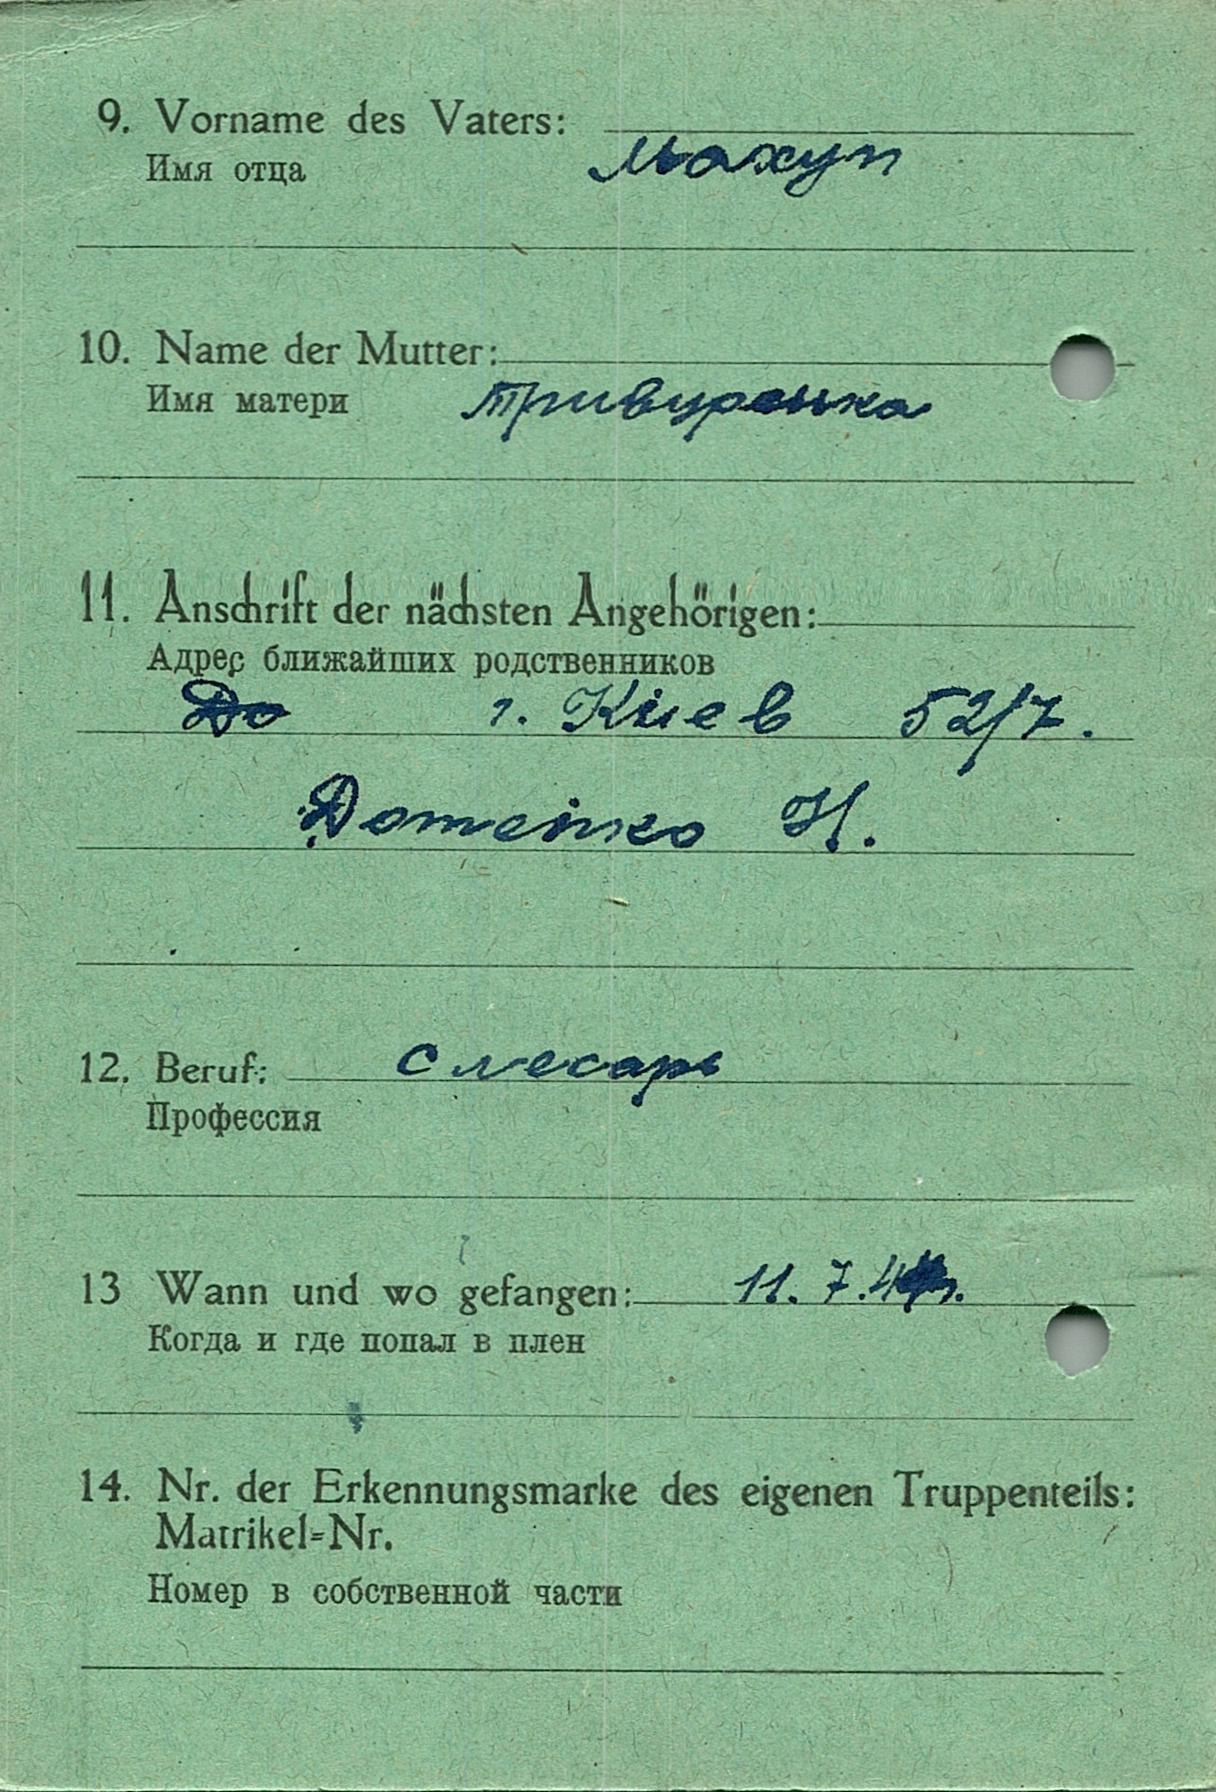 9. Vorname des Vaters:
Имя отца Махуп
10. Name der Mutter:
Имя матери
11. Anschrift der nächsten Angehörigen:
Адрес ближайших родственников
До г. Киев 52/7.
Н.
12. Beruf: слесарь
Профессия
13 Wann und wo gefangen: 11. 7.
Когда и где попал в плен
14. Nr. der Erkennungsmarke des eigenen Truppenteils:
Matrikel=Nr.
Номер в собственной части